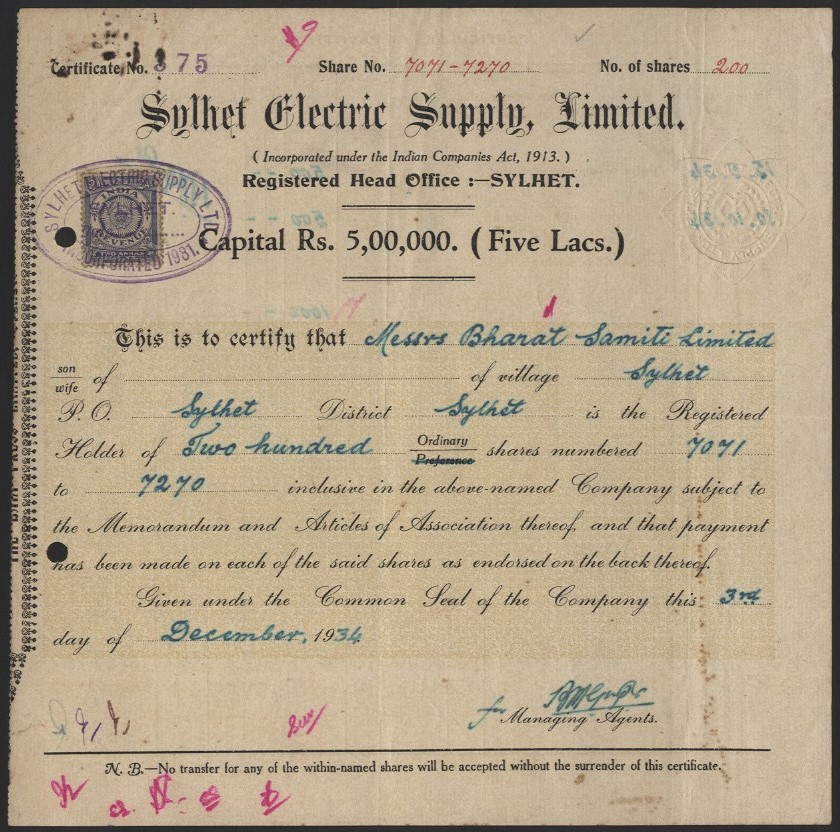 Certificate No. 375 Share No. 7071-7270 No. of shares 200
Sylhet Electric Supply, Limited.
( Incorporated under the Indian Companies Act, 1913. )
Registered Head Office :—SYLHET.
SYLHET ELECTRIC SUPPLY LTD.
INCORPORATED 1931.
INDIA
REVENUE
Capital Rs. 5,00,000. ( Five Lacs.)
This is to certify that Messrs Bharat Samiti Limited
son
wife of of village Sylhet
P.O. Sylhet District Sylhet is the Registered
Holder of Two hundred Ordinary Preference shares numbered 7071
to 7270 inclusive in the above-named Company subject to
the Memorandum and Articles of Association thereof, and that payment
has been made on each of the said shares as endorsed on the back thereof.
Given under the Common Seal of the Company this 3rd
day of December, 1934
for Managing Agents.
N. B.—No transfer for any of the within-named shares will be accepted without the surrender of this certificate.